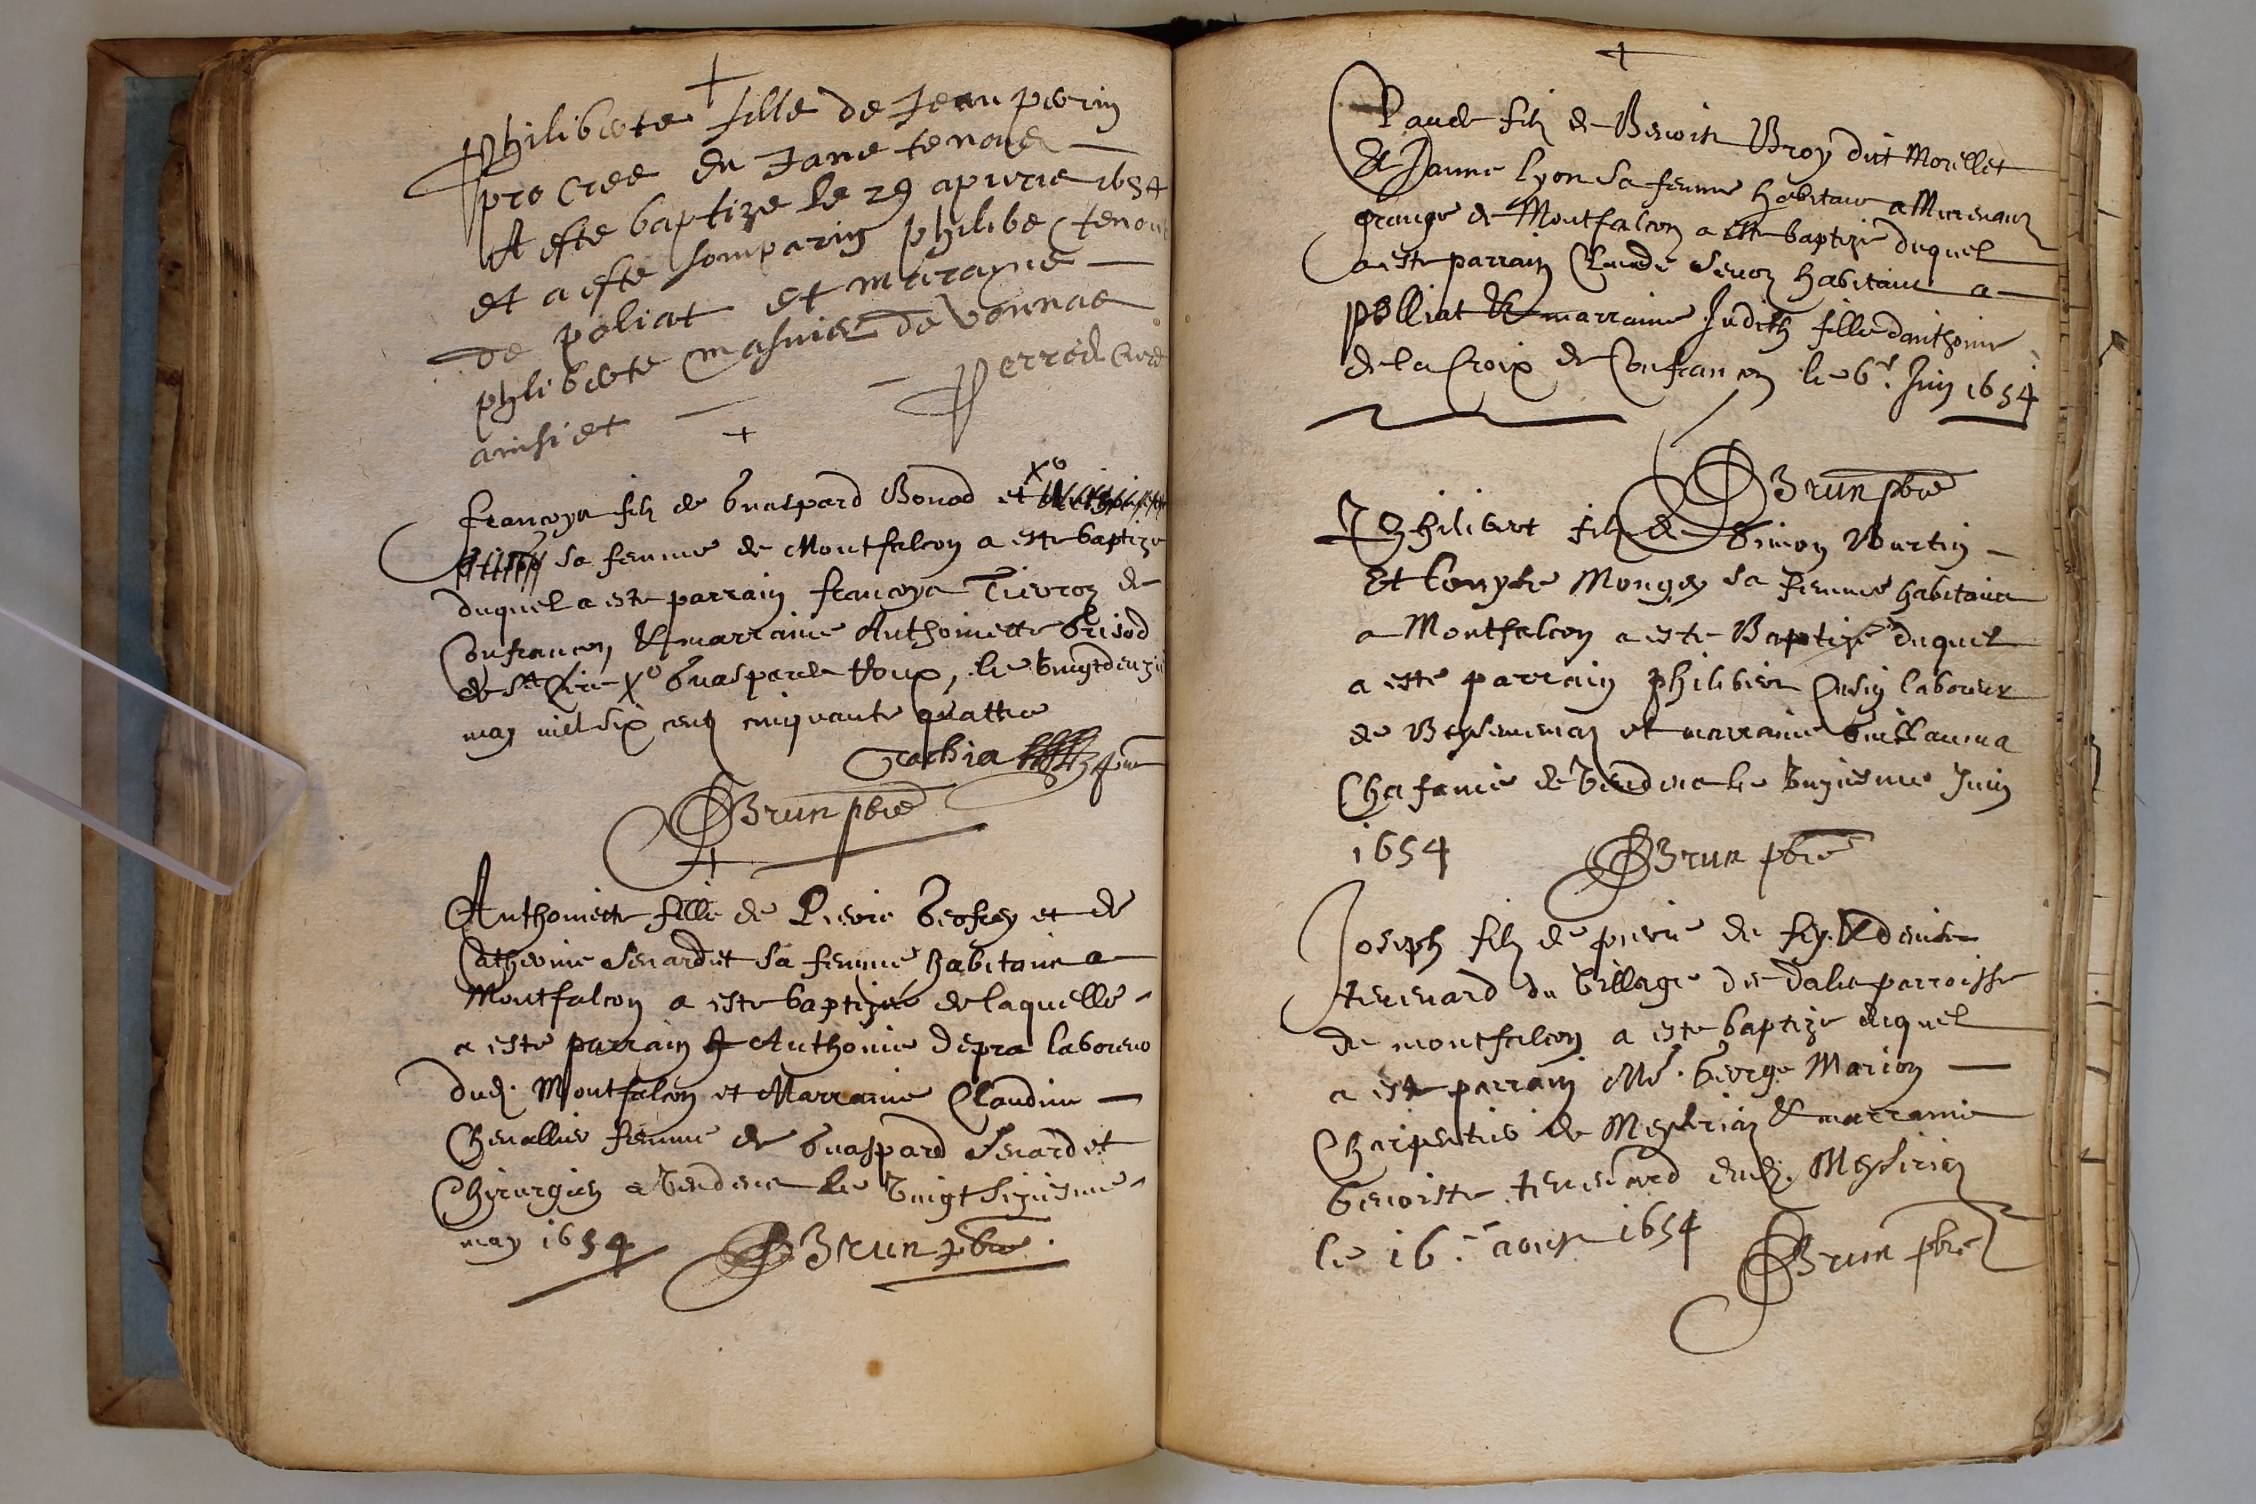 Philiberte fille de Jean perrin
procree en Jane tenoud
A este baptize le 29 apvril 1654
et a este son parin philibe tenou
de poliat et marayne
philiberte masnier de vonnas
Perrod Curé
francoys filz de Guaspard Bouod et X°
sa femme de Montfalcon a este baptize
duquel a este parrain francoys de
Confrancon, & marraine Anthoinette Grisod
de St Cire X° Guasparde Roux, le vingtdeuzie
may mil six centz cinquante quattre
BBrun pbre
Anthoinette fille de Pierre Geofrey et de
Catherine Senardet sa femme habitant a
Montfalcon a este baptizee de laquelle
a este parrain Anthoine Depra laboureur
dud. Montfalcon et Marraine Claudine
Chevallier femme de Guaspard Senardet
Chirurgien a Vendens le vingt siziesme
may 1654 BBrun pbre
Claude filz de Benoist Broy dict Morellet
& Janne Lyon sa femme habitant a
grange de Montfalcon a este baptizé duquel
a este parrain Claude habitant a
Polliat & marraine Judith fille danthoine
de la Croix de Confrancon le 6e. Juin 1654
BBrun pbre
Philibert filz de Simon Burtin
Et Monget sa femme habitant
a Montfalcon a este Baptizé duquel
a este parrain philibert laboureur
de et marraine Guillauma
Chafanie de le unziesme Juin
1654 BBrun pbre
Joseph filz de pierre & denise
tevenard du Village de parroisse
de montfalcon a este baptize duquel
a este parrain Me. George Marion
Charpentier de Meysiria & marraine
benoiste tevenard dud. Meysiria
le 16e aoust 1654
BBrun pbre